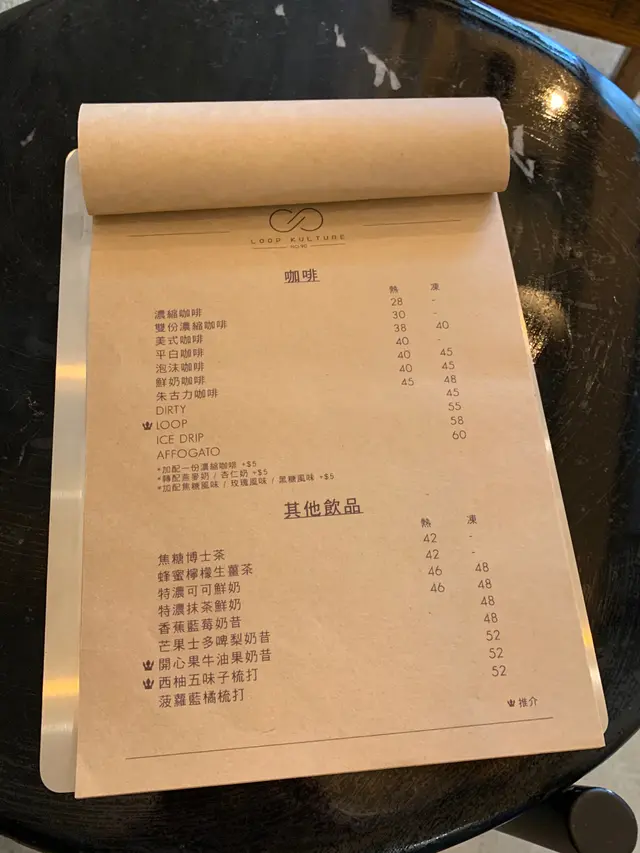 LOOP KULTURE
咖啡
熱 凍
濃縮咖啡 28 -
雙份濃縮咖啡 30 -
美式咖啡 38 40
平白咖啡 40 -
泡沫咖啡 40 45
鮮奶咖啡 40 45
朱古力咖啡 45 48
DIRTY 45
LOOP 55
ICE DRIP 58
AFFOGATO 60
*加配一份濃縮咖啡 +$5
*轉配燕麥奶 / 杏仁奶 +$5
*加配焦糖風味 / 玫瑰風味 / 黑糖風味 +$5
其他飲品
熱 凍
焦糖博士茶 42 -
蜂蜜檸檬生薑茶 42 -
特濃可可鮮奶 46 48
特濃抹茶鮮奶 46 48
香蕉藍莓奶昔 48
芒果士多啤梨奶昔 48
開心果牛油果奶昔 52
西柚五味子梳打 52
菠蘿藍橘梳打 52
推介